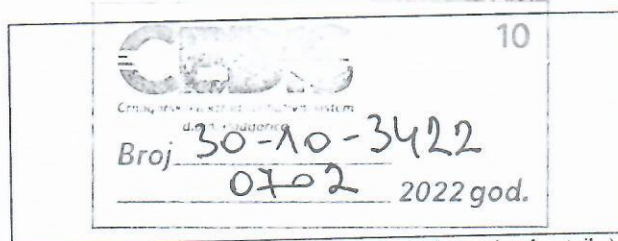 10
CEDIS
Crnogorski elektrodistributivni sistem
d.o.o. Podgorica
Broj 30-10-3422
0702 2022 god.